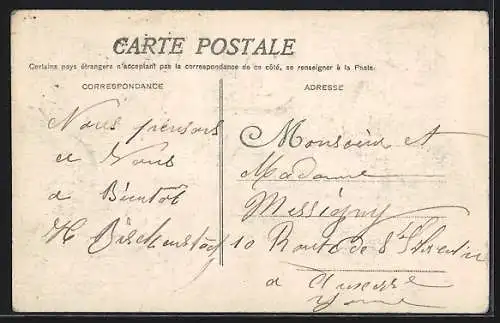 CARTE POSTALE
Certains pays étrangers n'acceptant pas la correspondance de ce côté, se renseigner à la Poste.
CORRESPONDANCE
ADRESSE
Nous pensons
a Vous
a Bientot
Monsoieur et
Madame
Messigny
10 Route de St Florentin
a Auxerre
Yonne